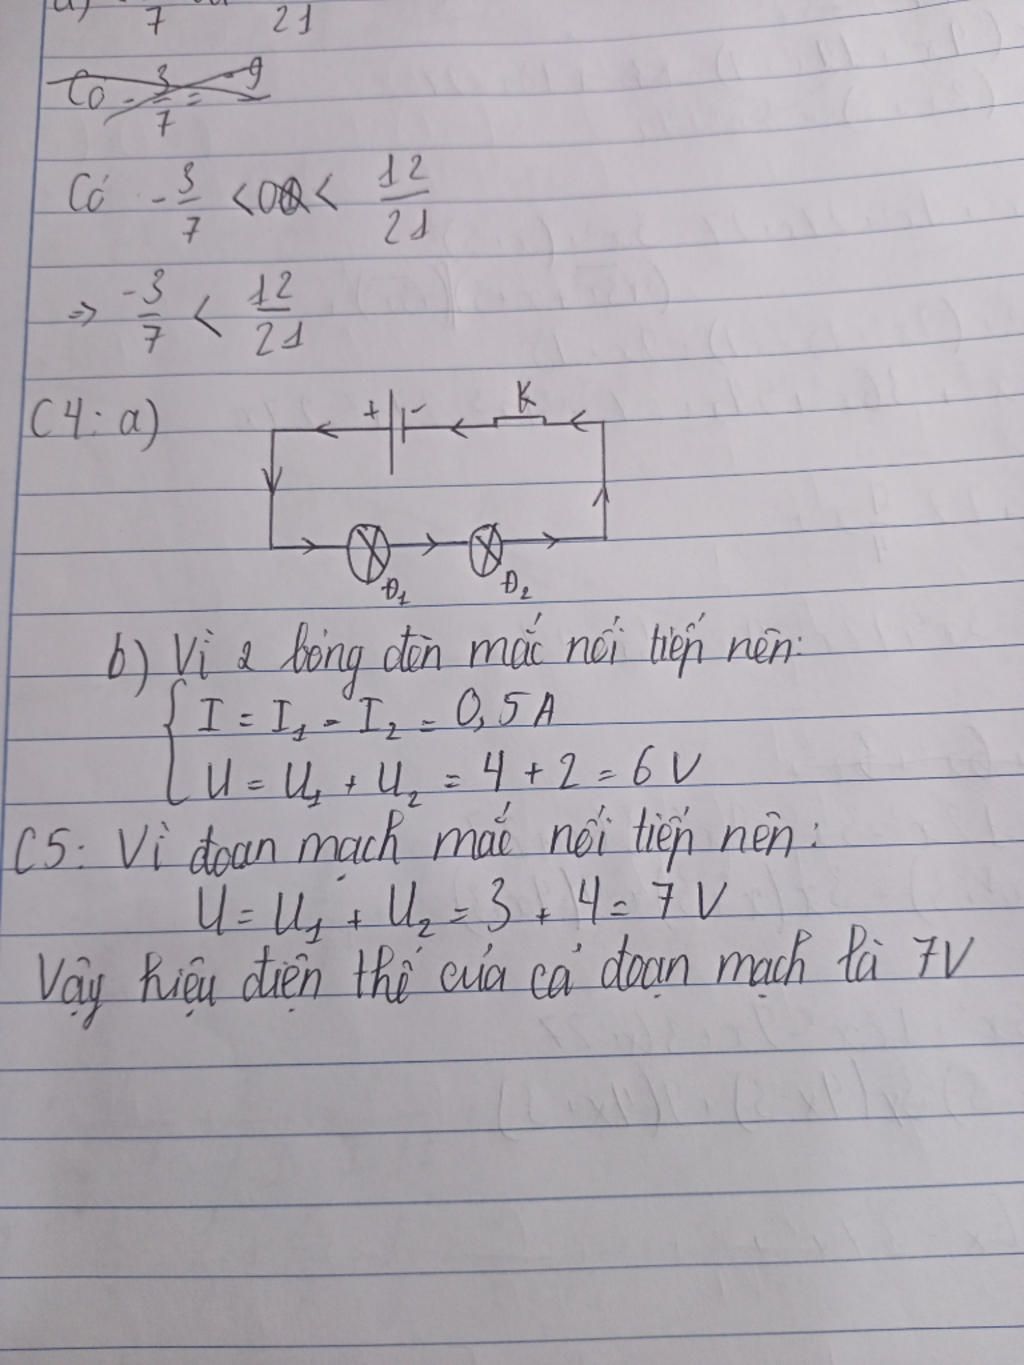 7 21
Có - 3/7 = -9
Có - 3/7 < 0 < 12/21
=> -3/7 < 12/21
C4: a)
+ - K
Đ1 Đ2
b) Vì 2 bóng đèn mắc nối tiếp nên:
I = I1 = I2 = 0,5A
U = U1 + U2 = 4 + 2 = 6 V
C5: Vì đoạn mạch mắc nối tiếp nên:
U = U1 + U2 = 3 + 4 = 7 V
Vậy hiệu điện thế của cả đoạn mạch là 7V